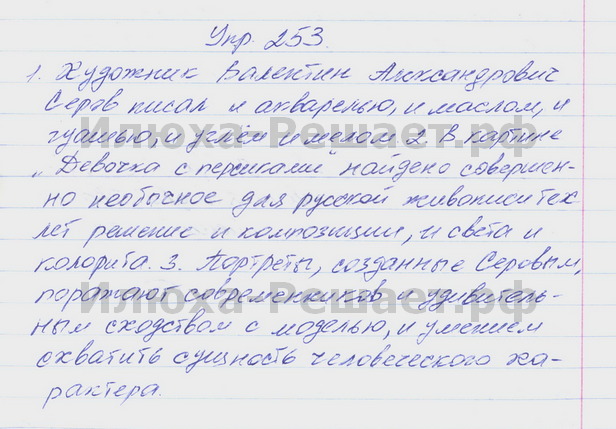 Упр. 253.
1. Художник Валентин Александрович
Серов писал и акварелью, и маслом, и
гуашью, и углём и мелом. 2. В картине
„Девочка с персиками" найдено совершен-
но необычное для русской живописи тех
лет решение и композиции, и света и
колорита. 3. Портреты, созданные Серовым,
поражают современников и удивитель-
ным сходством с моделью, и умением
схватить сущность человеческого ха-
рактера.
Илюха-Решает.рф
Илюха-Решает.рф